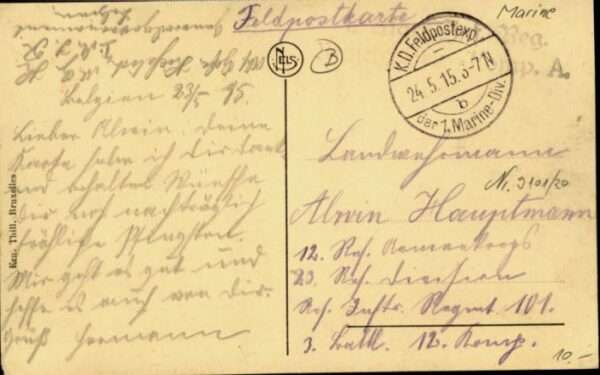 Feldpostkarte
Marine
Reg.
A.
K.D. Feldpostexp.
24.5.15. 3-7 N
b
der 1. Marine-Div.
NELS
B
Belgien 23/5 15.
Lieber Alwin, deine
Karte habe ich dir
und erhalten Wünsche
dir noch nachträglich
fröhliche Pfingsten.
Mir geht es gut und
hoffe es auch von dir.
Gruß Hermann
Landwehrmann
Nr. 3101/20
Alwin Hauptmann
12. Res. Armeekorps
23. Res. Division
Res. Inftr. Regmt 101.
3. Batl. 12. Komp.
10.-
Ern. Thill, Bruxelles